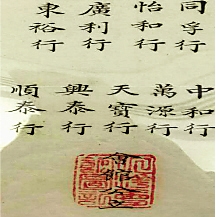 同孚行
怡和行
廣利行
東裕行
中和行
萬源行
天寶行
興泰行
順泰行